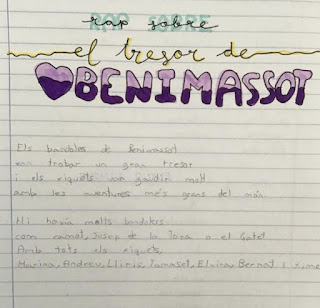 rap sobre
el tresor de
BENIMASSOT
Els bandolers de Benimassot
van trobar un gran tresor
i els xiquets van gaudir molt
amb les aventures més grans del món
Hi havia molts bandolers
com camot, Josep de la Tona o el Gatet
Amb tots els xiquets,
Marina, Andreu, Lliris, Tomaset, Elvira, Bernat i Xime